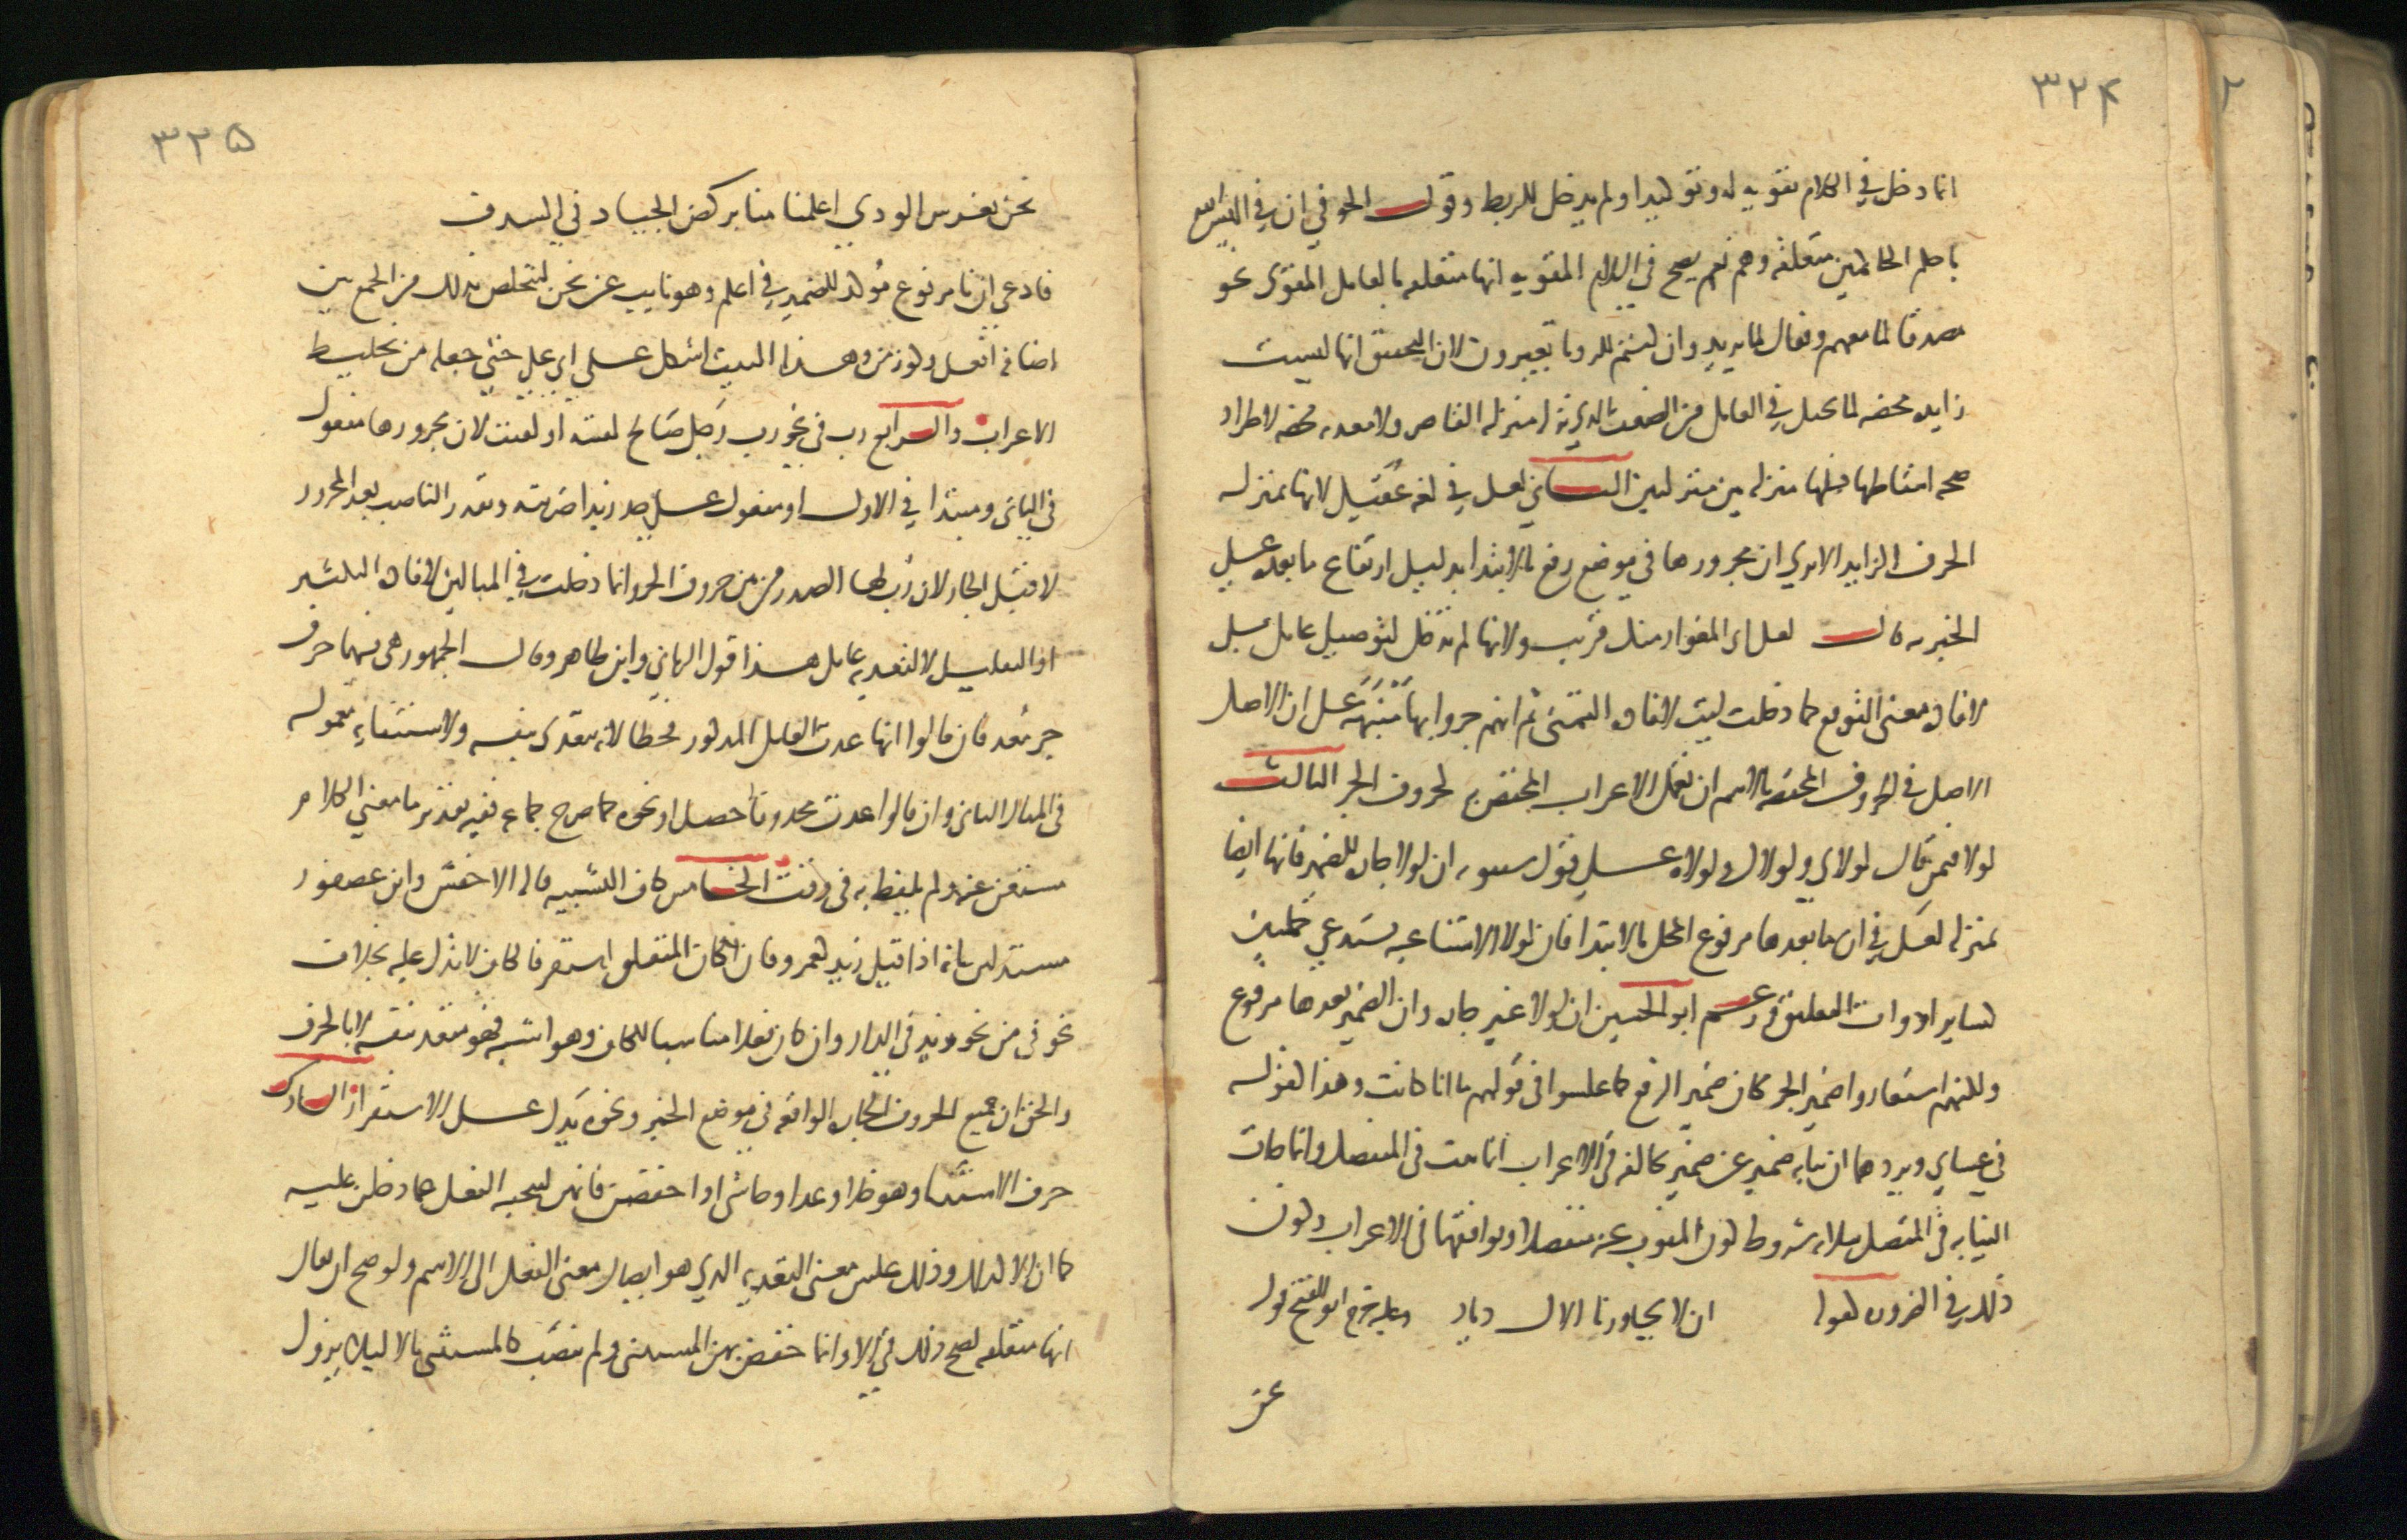 ٣٢٤
انما دخل في الكلام تقويه له وتوكيدا ولم يدخل للربط وقول الحوفي ان في اليس الله
باحكم الحاكمين متعلقه وهم نعم يصح في اللام المقويه انها متعلقه بالعامل المقوى نحو
مصدقا لما معهم وفعال لما يريد وان كنتم للرويا تعبرون لان التحقيق انها ليست
زايده محضه لما تخيل في العامل من الضعف الذي نزله منزله القاصر ولا معديه محضه لاطراد
صحه اسقاطها فلها منزله بين منزلتين الثاني لعل في لغه عُقَيل لانها بمنزله
الحرف الزايد الا ترى ان مجرورها في موضع رفع بالابتدا بدليل ارتفاع ما بعده على
الخبريه قال لعل ابى المغوار منك قريب ولانها لم تدخل لتوصيل عامل بل
لافاده معنى التوقع كما دخلت ليت لافاده التمنى ثم انهم جروا بها مُنبّهه على ان الاصل
الاصل في الحروف المختصه بالاسم ان تعمل الاعراب المختص به كحروف الجر الثالث
لولا فيمن قال لولاى ولولاك ولولاه على قول سيبويه ان لولا جاره للضمير فانها ايضا
بمنزله لعل في ان ما بعدها مرفوع المحل بالابتدا فان لولا الامتناعيه تستدعي جملتين
كساير ادوات التعليق زعم ابو الحسن ان لولا غير جاره وان الضمير بعدها مرفوع
ولكنهم استعاروا ضمير الجر مكان ضمير الرفع كما عكسوا في قولهم ما انا كانت وهذا كقوله
في عساي ويردهما ان نيابه ضمير عن ضمير يخالفه في الاعراب انما ثبتت في المنفصل وانما جات
النيابه في المتصل بثلاثه شروط كون المنوب عنه منفصلا وتوافقهما في الاعراب وكون
ذلك في الضروره كقوله ان لا يجاورنا الاك ديار وعليه خرج ابو الفتح قوله
نحن
٣٢٥
نحن بغرس الودي اعلمنا منا بركض الجياد في السدف
فادعى ان نا مرفوع مُوكد للضمير في اعلم وهو نايب عن نحن ليتخلص بذلك من الجمع بين
اضافه افعل وكونه بمن وهذا البيت اشكل على ابي علي حتى جعله من تخليط
الاعراب والرابع رب في نحو رب رَجل صَالح لقيته او لقيت لان مجرورها مفعول
في الثاني ومبتدا في الاول او مفعول على حد زيدا ضربته ويقدر الناصب بعد المجرور
لا قبل الجار لان رُب لها الصدر من بين حروف الجر وانما دخلت في المثالين لافاده التكثير
او التقليل لا لتعديه عامل هذا قول الرماني وابن طاهر وقال الجمهور هي فيهما حرف
جر مُعد فان قالوا انها عدت العامل المذكور فخطا لانه يتعدى بنفسه ولاستيفايه معموله
في المثال الثاني وان قالوا عدت محذوفا حصل او نحوه كما صرح جماعه ففيه تقدير ما معنى الكلام
مستغن عنه ولم يلفظ به في وقت الخامس كاف التشبيه قاله الاخفش وابن عصفور
مستدلين بانه اذا قيل زيد كعمرو فان كان المتعلق استقر فالكاف لا تدل عليه بخلاف
نحو في من نحو زيد في الدار وان كان فعلا مناسبا للكاف وهو اشبه فهو متعد بنفسه لا بالحرف
والحق ان جميع الحروف الجاره الواقعه في موضع الخبر ونحوه يَدل على الاستقرار السادس
حرف الاستثنا وهو خلا وعدا وحاشى اذا خفضن فانهن لتنحيه الفعل عما دخلن عليه
كما ان الا كذلك وذلك عكس معنى التعديه الذي هو ايصال معنى الفعل الى الاسم ولو صح ان يقال
انها متعلقه لصح ذلك في الا وانما خفض بهن المستثنى ولم ينصَب كالمستثنى بالا ليلا يزول